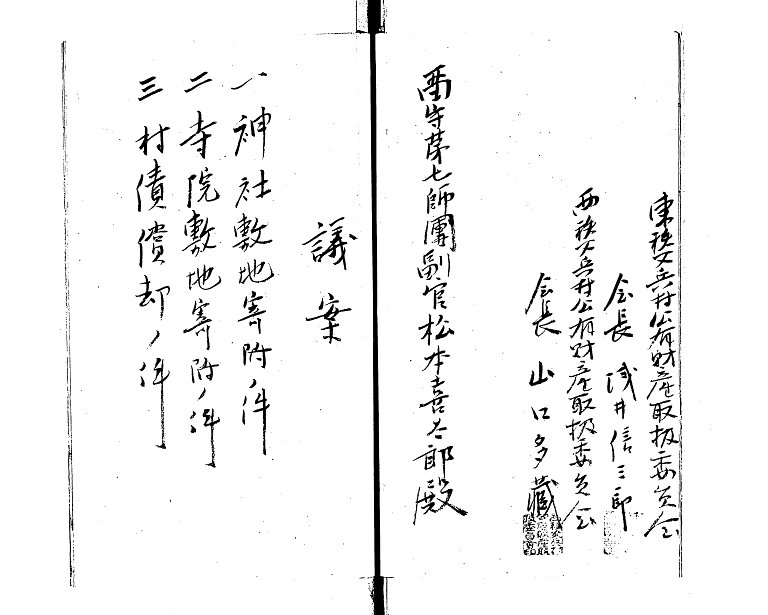 東秩父兵村公有財産取扱委員会
会長 浅井信三郎
西秩父兵村公有財産取扱委員会
会長 山口多藏
留守第七師團副官松本喜太郎殿
議案
一 神社敷地寄附ノ件
二 寺院敷地寄附ノ件
三 村債償却ノ件